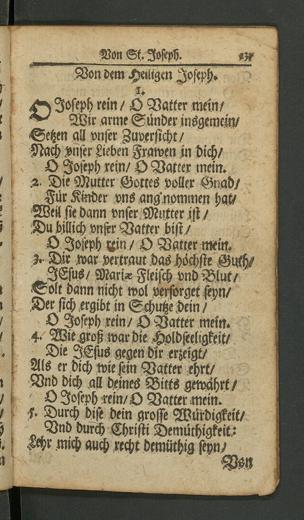 Von St. Joseph. 231
Von dem Heiligen Joseph.
1.
O Joseph rein / O Vatter mein /
Wir arme Sünder insgemein /
Setzen all vnser Zuversicht /
Nach vnser Lieben Frawen in dich /
O Joseph rein / O Vatter mein.
2. Die Mutter Gottes voller Gnad /
Für Kinder vns ang'nommen hat /
Weil sie dann vnser Mutter ist /
Du billich vnser Vatter bist /
O Joseph rein / O Vatter mein.
3. Dir war vertraut das höchste Guth /
JEsus / Mariæ Fleisch vnd Blut /
Solt dann nicht wol versorget seyn /
Der sich ergibt in Schutze dein /
O Joseph rein / O Vatter mein.
4. Wie groß war die Holdseeligkeit /
Die JEsus gegen dir erzeigt /
Als er dich wie sein Vatter ehrt /
Vnd dich all deines Bitts gewährt /
O Joseph rein / O Vatter mein.
5. Durch dise dein grosse Würdigkeit /
Vnd durch Christi Demüthigkeit:
Lehr mich auch recht demüthig seyn /
Von